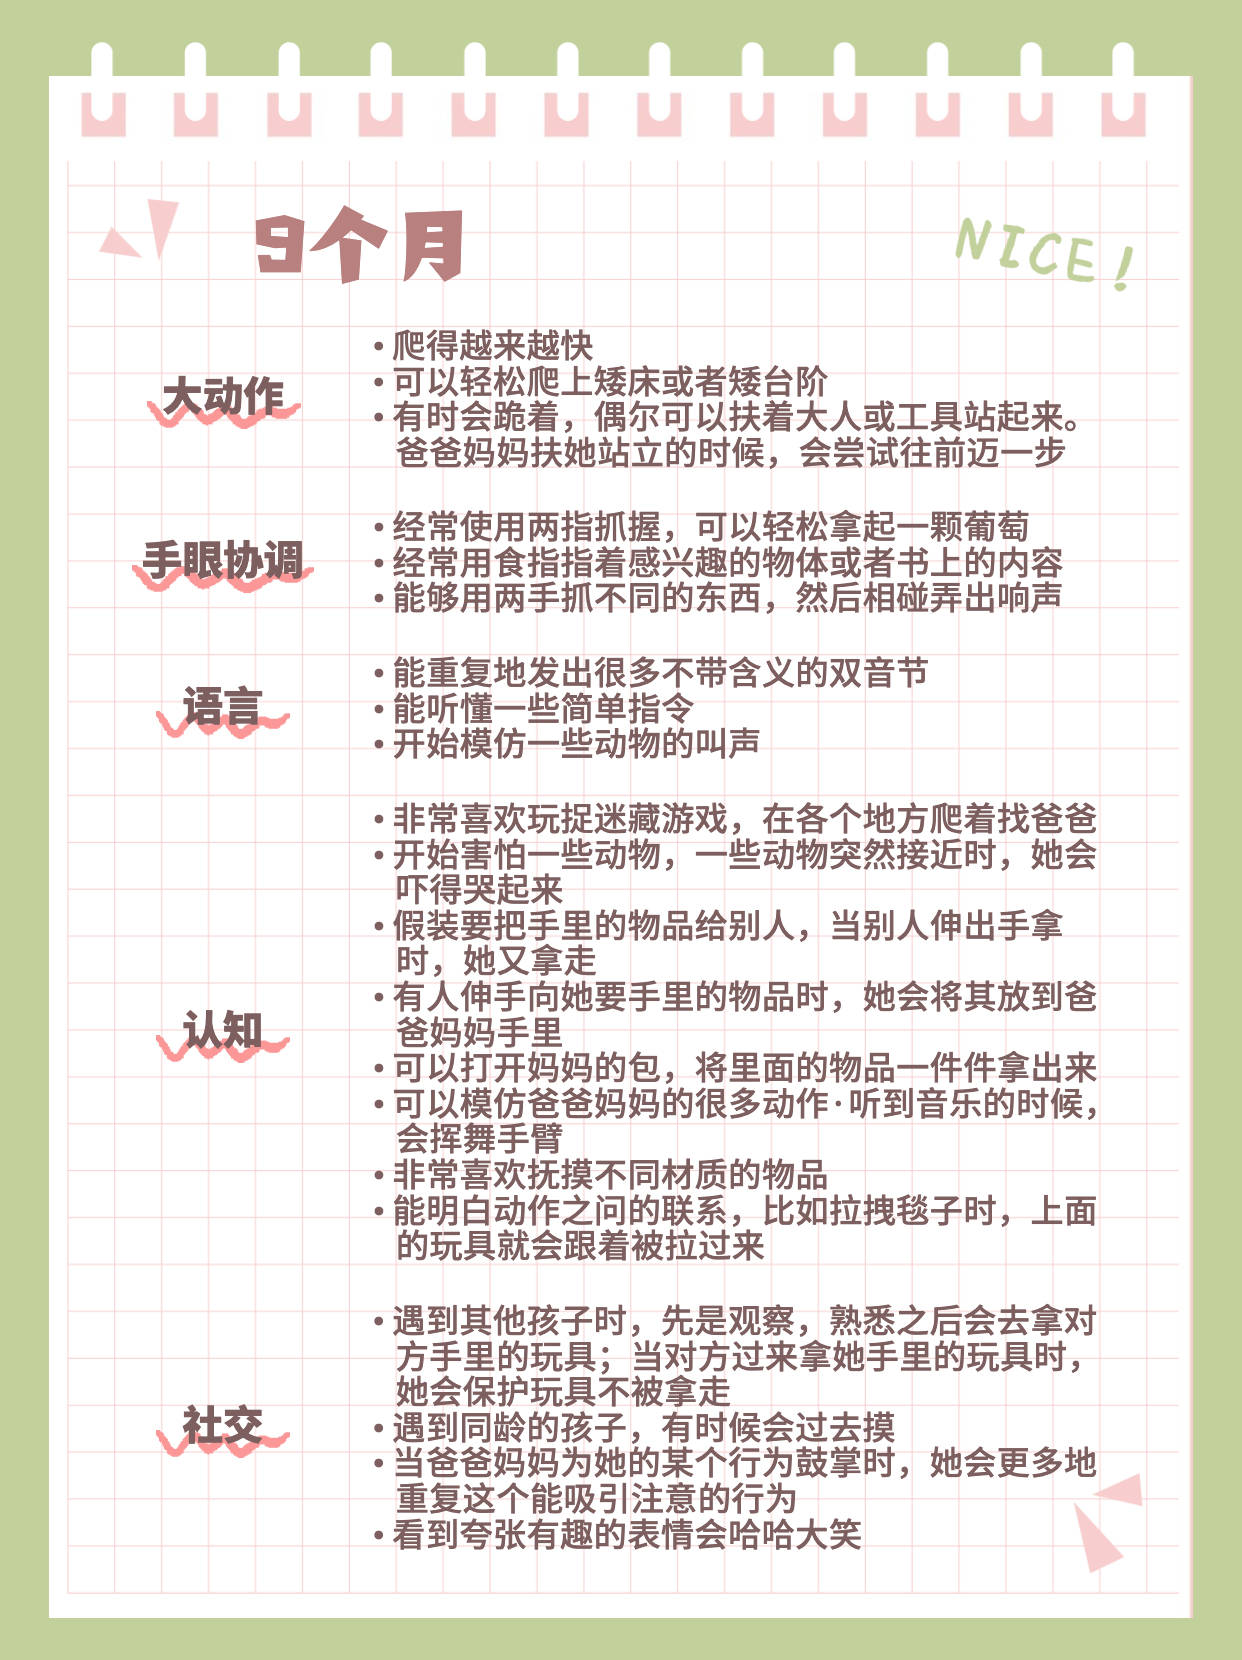 9个月
NICE!
大动作
• 爬得越来越快
• 可以轻松爬上矮床或者矮台阶
• 有时会跪着，偶尔可以扶着大人或工具站起来。
爸爸妈妈扶她站立的时候，会尝试往前迈一步
手眼协调
• 经常使用两指抓握，可以轻松拿起一颗葡萄
• 经常用食指指着感兴趣的物体或者书上的内容
• 能够用两手抓不同的东西，然后相碰弄出响声
语言
• 能重复地发出很多不带含义的双音节
• 能听懂一些简单指令
• 开始模仿一些动物的叫声
认知
• 非常喜欢玩捉迷藏游戏，在各个地方爬着找爸爸
• 开始害怕一些动物，一些动物突然接近时，她会
吓得哭起来
• 假装要把手里的物品给别人，当别人伸出手拿
时，她又拿走
• 有人伸手向她要手里的物品时，她会将其放到爸
爸妈妈手里
• 可以打开妈妈的包，将里面的物品一件件拿出来
• 可以模仿爸爸妈妈的很多动作·听到音乐的时候，
会挥舞手臂
• 非常喜欢抚摸不同材质的物品
• 能明白动作之问的联系，比如拉拽毯子时，上面
的玩具就会跟着被拉过来
社交
• 遇到其他孩子时，先是观察，熟悉之后会去拿对
方手里的玩具；当对方过来拿她手里的玩具时，
她会保护玩具不被拿走
• 遇到同龄的孩子，有时候会过去摸
• 当爸爸妈妈为她的某个行为鼓掌时，她会更多地
重复这个能吸引注意的行为
• 看到夸张有趣的表情会哈哈大笑